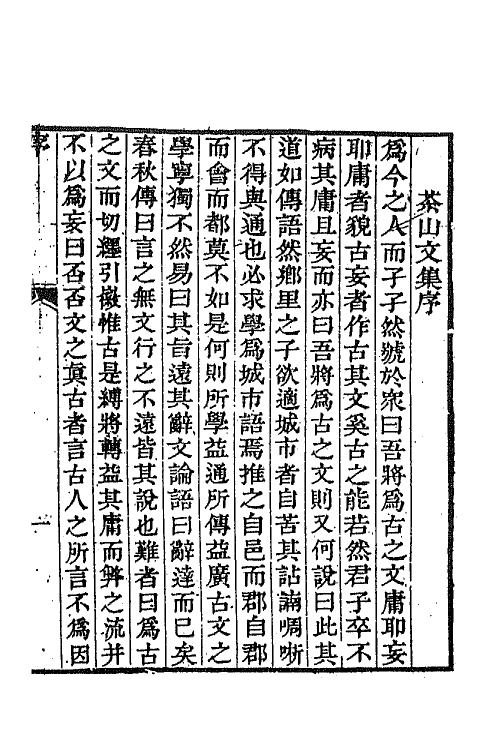 茶山文集序
爲今之人而孑孑然號於眾曰吾將爲古之文庸耶妄
耶庸者貌古妄者作古其文奚古之能若然君子卒不
病其庸且妄而亦曰吾將爲古之文則又何說曰此其
道如傳語然鄉里之子欲適城市者自苦其詀諵啁哳
不得與通也必求學爲城市語焉推之自邑而郡自郡
而會而都莫不如是何則所學益通所傳益廣古文之
學寧獨不然易曰其旨遠其辭文論語曰辭達而已矣
春秋傳曰言之無文行之不遠皆其說也難者曰爲古
之文而切繩引徽惟古是縛將轉益其庸而弊之流并
不以爲妄曰否否文之眞古者言古人之所言不爲因
一